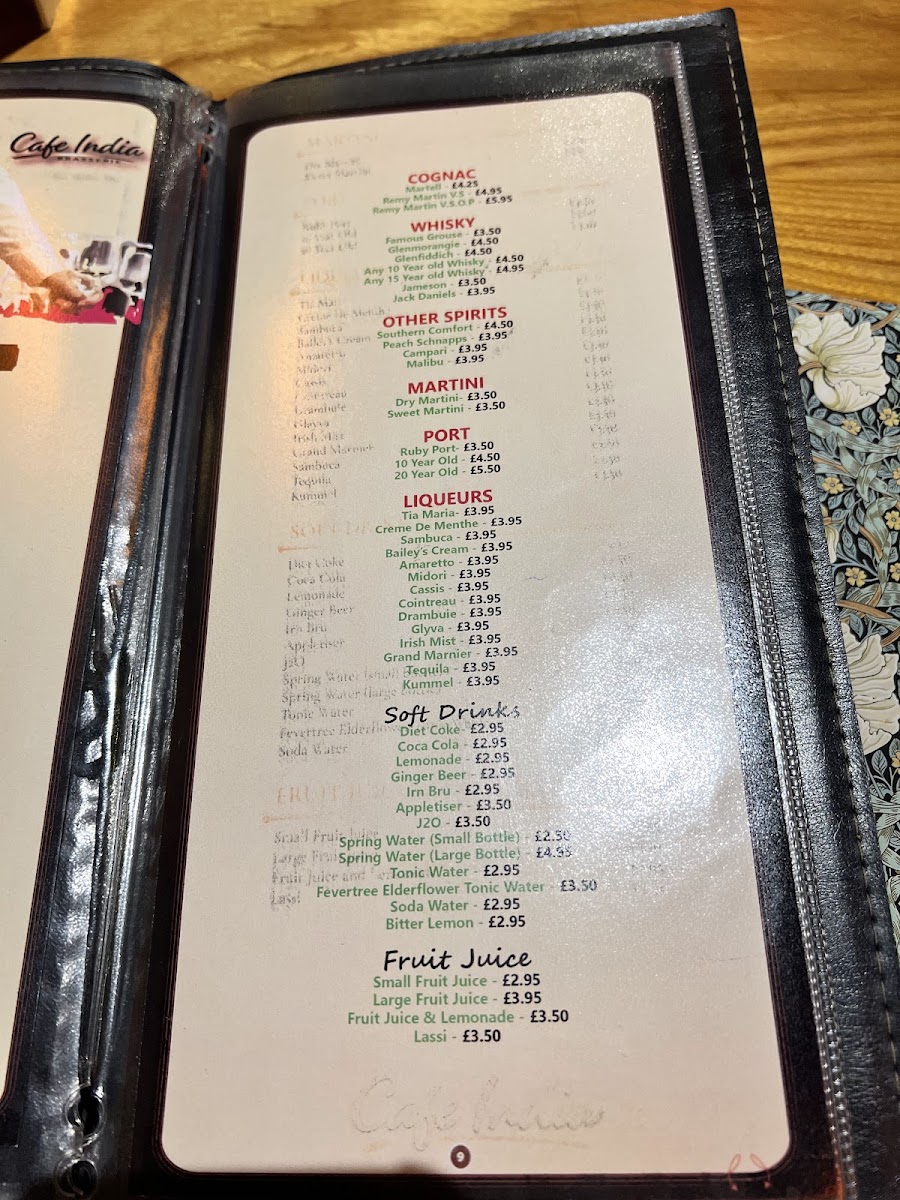 Cafe India
BRASSERIE
COGNAC
Martell - £4.25
Remy Martin V.S - £4.95
Remy Martin V.S.O.P - £5.95
WHISKY
Famous Grouse - £3.50
Glenmorangie - £4.50
Glenfiddich - £4.50
Any 10 Year old Whisky - £4.50
Any 15 Year old Whisky - £4.95
Jameson - £3.50
Jack Daniels - £3.95
OTHER SPIRITS
Southern Comfort - £4.50
Peach Schnapps - £3.95
Campari - £3.95
Malibu - £3.95
MARTINI
Dry Martini- £3.50
Sweet Martini - £3.50
PORT
Ruby Port- £3.50
10 Year Old - £4.50
20 Year Old - £5.50
LIQUEURS
Tia Maria- £3.95
Creme De Menthe - £3.95
Sambuca - £3.95
Bailey's Cream - £3.95
Amaretto - £3.95
Midori - £3.95
Cassis - £3.95
Cointreau - £3.95
Drambuie - £3.95
Glyva - £3.95
Irish Mist - £3.95
Grand Marnier - £3.95
Tequila - £3.95
Kummel - £3.95
Soft Drinks
Diet Coke- £2.95
Coca Cola - £2.95
Lemonade - £2.95
Ginger Beer - £2.95
Irn Bru - £2.95
Appletiser - £3.50
J2O - £3.50
Spring Water (Small Bottle) - £2.50
Spring Water (Large Bottle) - £4.95
Tonic Water - £2.95
Fevertree Elderflower Tonic Water - £3.50
Soda Water - £2.95
Bitter Lemon - £2.95
Fruit Juice
Small Fruit Juice - £2.95
Large Fruit Juice - £3.95
Fruit Juice & Lemonade - £3.50
Lassi - £3.50
9